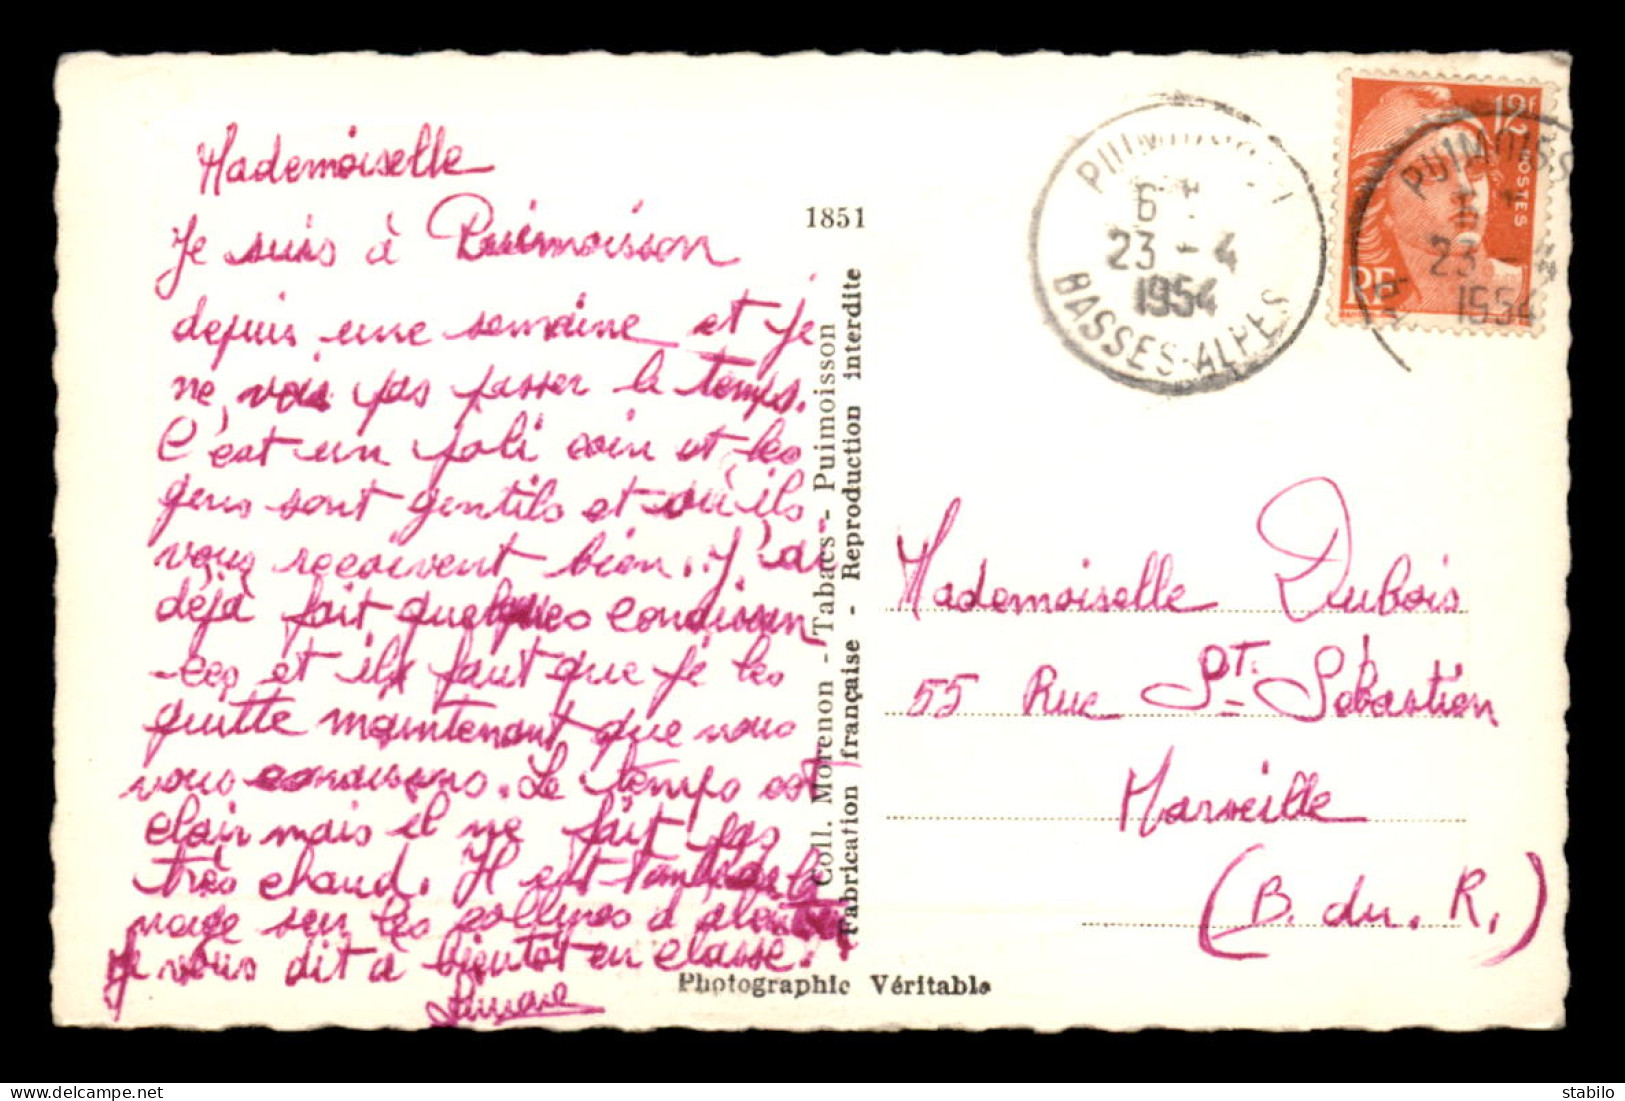 Mademoiselle
Je suis à Puimoisson
depuis une semaine et je
ne vois pas passer le temps.
C'est un joli coin et les
gens sont gentils et où ils
vous reçoivent bien. J'ai
déjà fait quelques connaissan
-ces et ils faut que je les
quitte maintenant que nous
vous connaissons. Le temps est
clair mais il ne fait pas
très chaud. Il est tombé de la
neige sur les collines d'
Je vous dit à bientôt en classe.
1851
Coll. Morenon - Tabacs - Puimoisson
Fabrication française - Reproduction interdite
Photographie Véritable
PUIMOISSON
6 H
23 - 4
1954
BASSES-ALPES
12f
POSTES
RF
PUIMOISS
23 - 4
1954
Mademoiselle Dubois
55 Rue St. Sébastien
Marseille
(B. du. R.)
stabilo